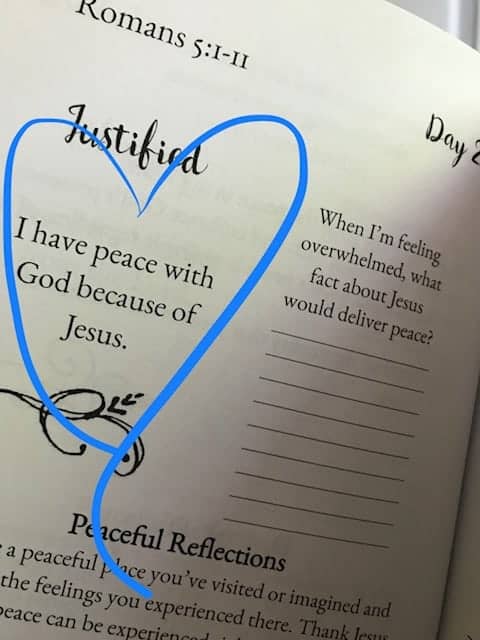 Romans 5:1-11
Justified
I have peace with
God because of
Jesus.
Day
When I'm feeling
overwhelmed, what
fact about Jesus
would deliver peace?
Peaceful Reflections
a peaceful place you've visited or imagined and
the feelings you experienced there. Thank Jesus
peace can be experienced